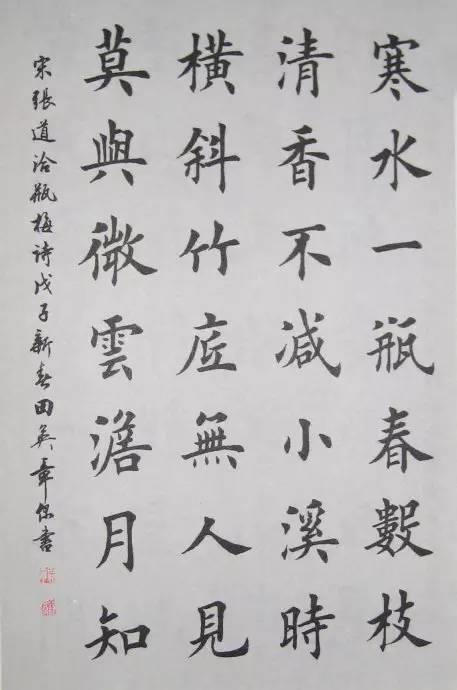 寒水一瓶春數枝
清香不減小溪時
橫斜竹底無人見
莫與微雲澹月知
宋張道洽瓶梅詩戊子新春田英章保書